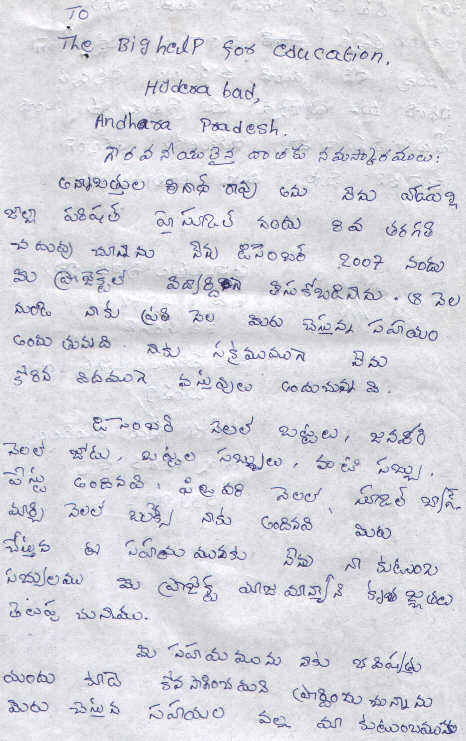 To
The Bighelp for Education,
Hydera bad,
Andhara Pradesh.
గౌరవనీయులైన దాతకు నమస్కారములు:
శ్రీనాథ్ రావు అను నేను
జిల్లా పరిషత్ హైస్కూల్ నందు 8వ తరగతి
చదువు చున్నాను నేను డిసెంబర్ 2007 నందు
మీ ప్రాజెక్ట్‌లో విద్యార్థిగా తీసుకోబడినాను. ఆ నెల
నుండి నాకు ప్రతి నెల మీరు చేస్తున్న సహాయం
అందు తున్నది నాకు సక్రమముగా నేను
కోరిన విదముగా వస్తువులు అందుచున్నవి.
డిసెంబర్ నెలలో బట్టలు, జనవరి
నెలలో జోడు, బట్టల సబ్బులు, వంటి సబ్బు,
పేస్టు అందినవి, ఫిబ్రవరి నెలలో, స్కూల్ బ్యాగ్,
మార్చి నెలలో బుక్స్ నాకు అందినవి మీరు
చేస్తున్న ఈ సహాయ మునకు నేను నా కుటుంబ
సభ్యులము మీ ప్రాజెక్ట్ యాజమాన్యానికి కృతజ్ఞతలు
తెలుపు చున్నాము.
మీ సహాయ మును నాకు భవిష్యత్తు
యందు కూడా కొనసాగించమని ప్రార్థించు చున్నాను
మీరు చేస్తున్న సహాయం వల్ల మా కుటుంబమునకు